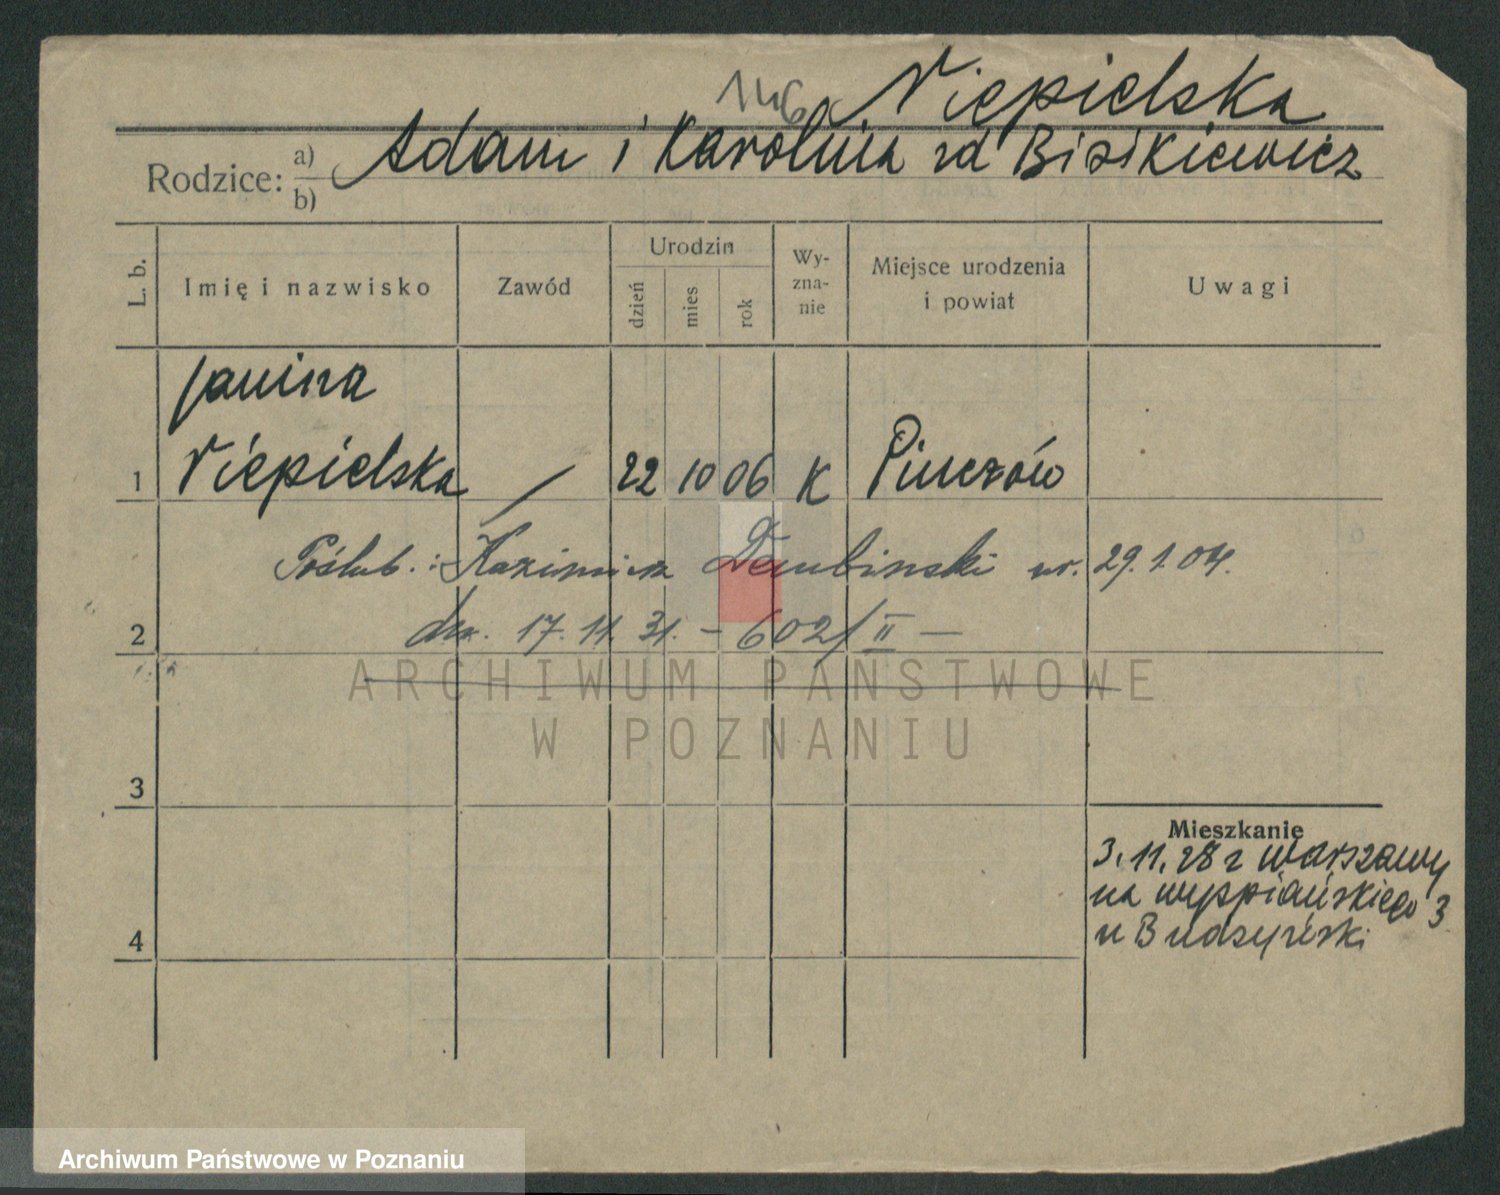 146 Niepielska
Rodzice: a) b) Adam i Karolina zd Bisikiewicz
L. b.
Imię i nazwisko
Zawód
Urodzin
dzień
mies
rok
Wy-
zna-
nie
Miejsce urodzenia
i powiat
Uwagi
Janina
1 Niepielska / 22 10 06 K Pinczów
Poślub.: Kazimierz Dembinski ur. 29.1.04.
2 dn. 17.11.31. - 602/II -
ARCHIWUM PAŃSTWOWE
W POZNANIU
3
Mieszkanie
3.11.28 z Warszawy
na Wyspiańskiego 3
4 u Budzyński
Archiwum Państwowe w Poznaniu